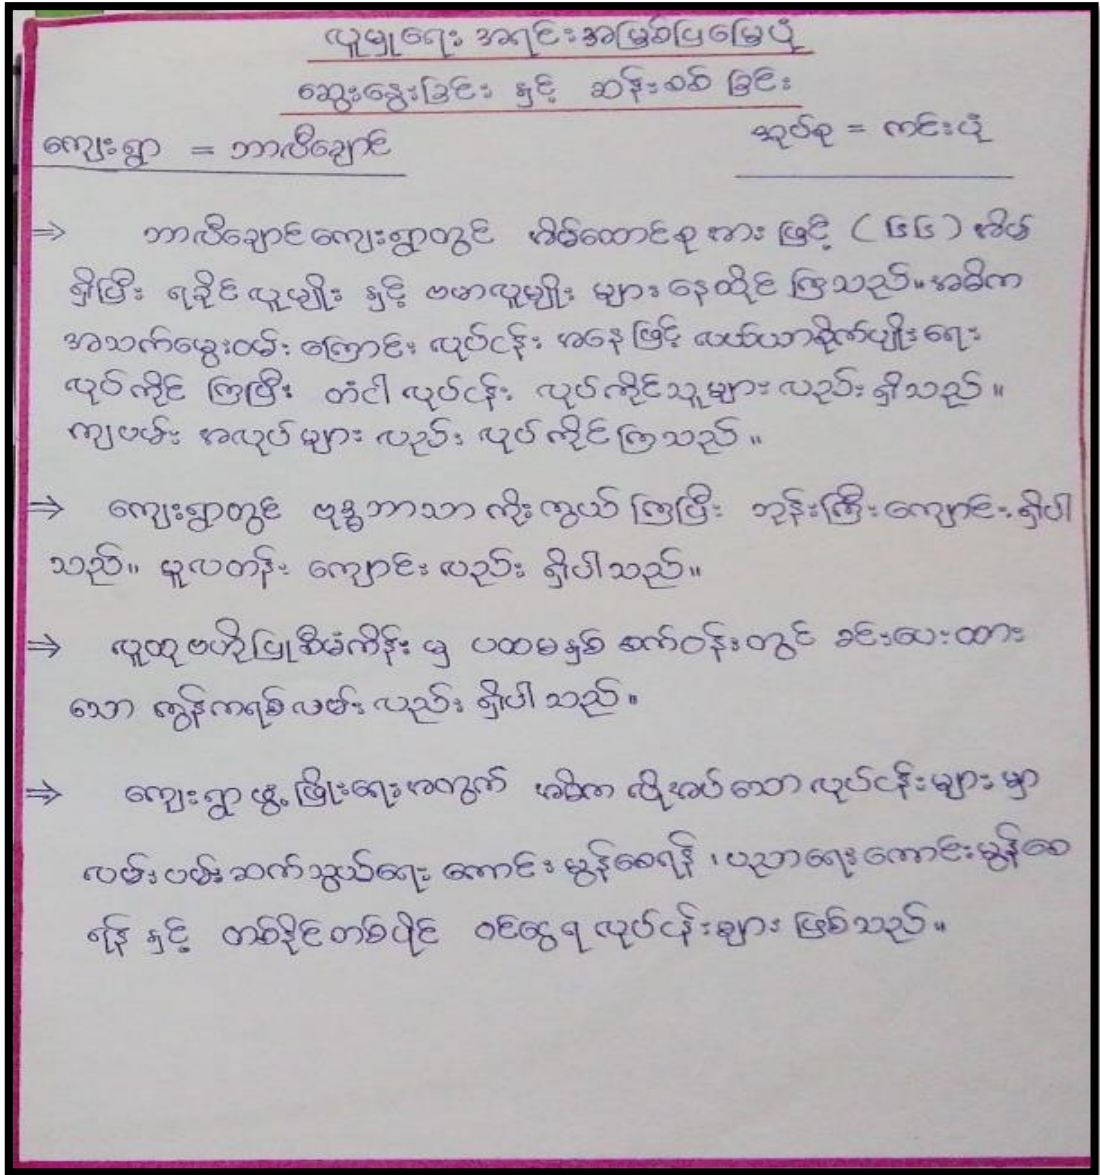 လူမှုရေး အရင်းအမြစ်ပြမြေပုံ
ဆွေးနွေးခြင်း နှင့် ဆန်းစစ် ခြင်း
ကျေးရွာ = ဘာလီချောင်
အုပ်စု = ကင်းပုံ
⇒ ဘာလီချောင်ကျေးရွာတွင် အိမ်ထောင်စုအားဖြင့် (၆၆) အိမ်
ရှိပြီး ရခိုင်လူမျိုး နှင့် ဗမာလူမျိုး များနေထိုင် ကြသည်။ အဓိက
အသက်မွေးဝမ်း ကြောင်း လုပ်ငန်း အနေဖြင့် လယ်ယာစိုက်ပျိုးရေး
လုပ်ကိုင် ကြပြီး တံငါ လုပ်ငန်း လုပ်ကိုင်သူများ လည်း ရှိသည်။
ကျပမ်း အလုပ်များ လည်း လုပ်ကိုင်ကြသည်။
⇒ ကျေးရွာတွင် ဗုဒ္ဓဘာသာ ကိုးကွယ် ကြပြီး ဘုန်းကြီးကျောင်း ရှိပါ
သည်။ မူလတန်း ကျောင်း လည်း ရှိပါသည်။
⇒ လူထုဗဟိုပြုစီမံကိန်း မှ ပထမနှစ် စက်ဝန်းတွင် ခင်းပေးထား
သော ကွန်ကရစ်လမ်း လည်း ရှိပါသည်။
⇒ ကျေးရွာဖွံ့ဖြိုးရေးအတွက် အဓိက လိုအပ်သော လုပ်ငန်းများ မှာ
လမ်းပမ်းဆက်သွယ်ရေး ကောင်းမွန်စေရန်၊ ပညာရေးကောင်းမွန်စေ
ရန် နှင့် တစ်နိုင်တစ်ပိုင် ဝင်ငွေရ လုပ်ငန်းများ ဖြစ်သည်။